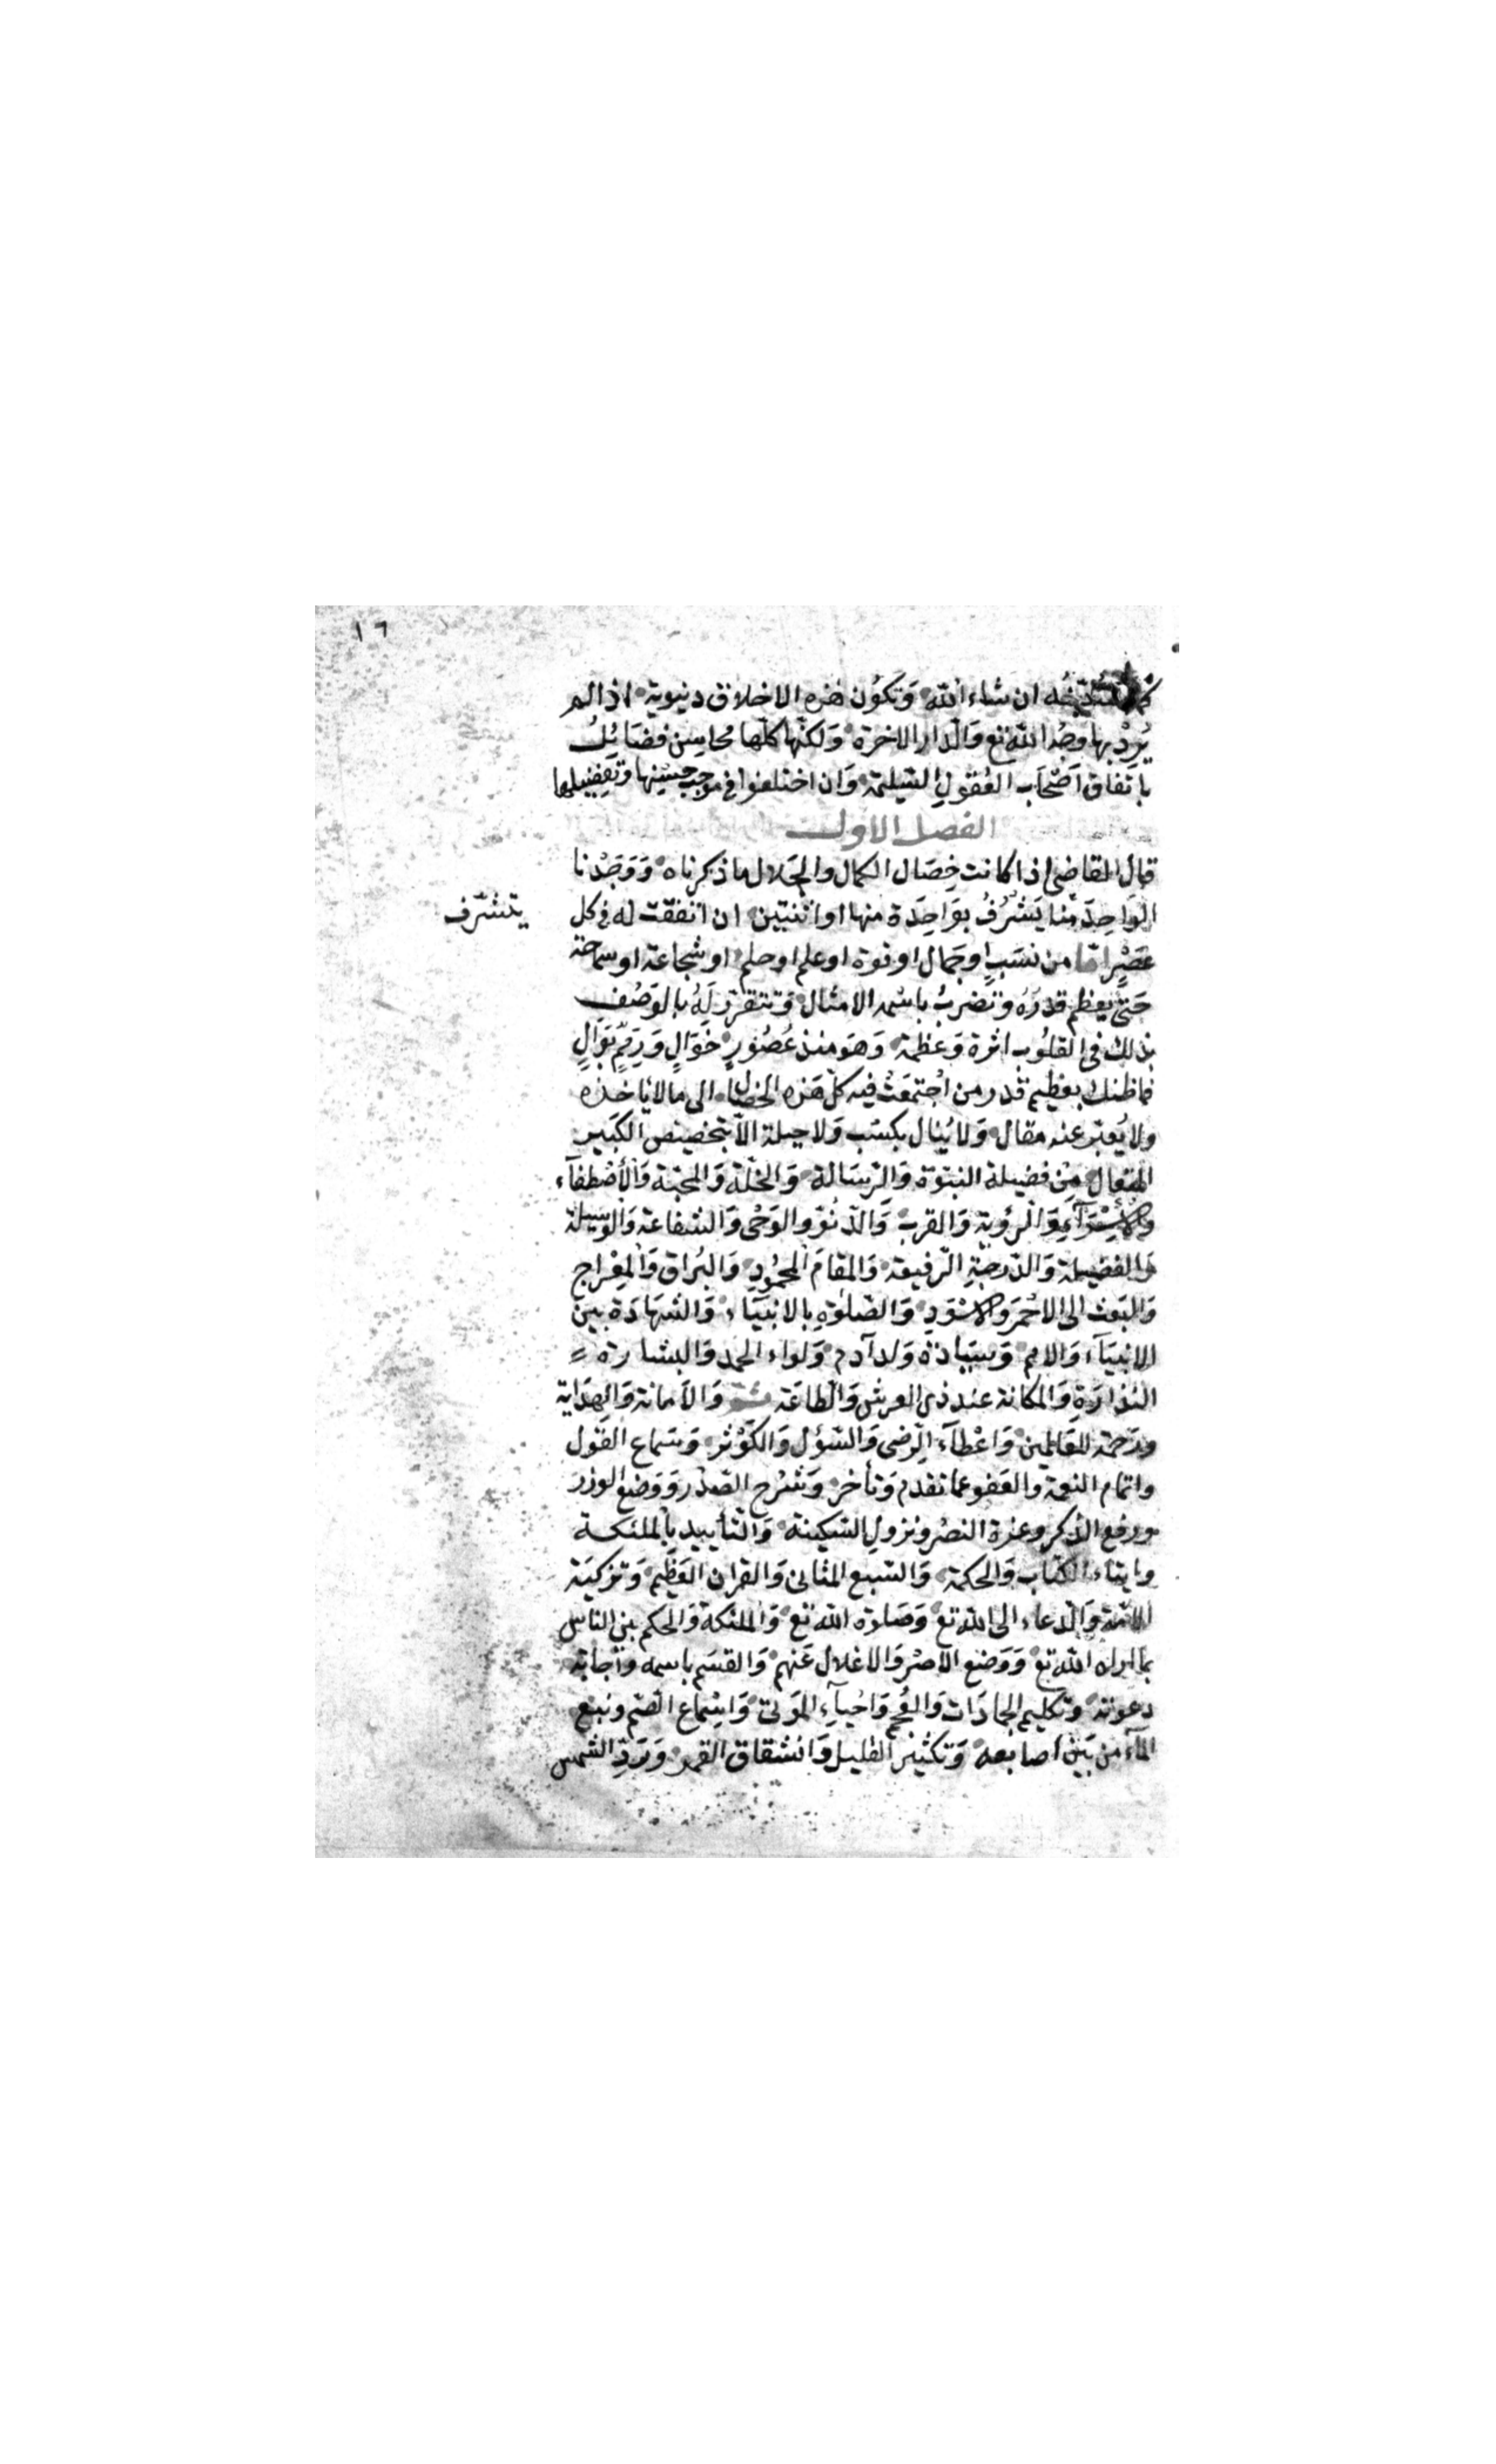 ١٦
كما سنشرحه ان شاء الله وَتكُون هٰذه الاخلاق دنيوية اذا لم
يُرِدْ بها وَجْه الله تع وَالدار الاخرة وَلكنّها كلّها محاسِن فضَائِلُ
باتفاق اَصْحَاب العُقولِ السَّليمَة وَان اختلفوا في موجب حسْنِها وَتفضيلها
الفصل الاول
قال القاضي اذا كانت خِصَال الكمال والجَلال ما ذكرناه وَوَجَدْنا
الوَاحِدَ مّنا يَشْرُفُ بوَاحِدَة منها او اثنتين ان اتفقت له في كل
يتشرّف
عَصْرٍ امّا من نسَبٍ او جَمال او قوة او علم او حلم او شجاعة او سماحة
حَتى يعظم قدرُهُ وَتضربُ باسْمه الامثال وَتتقرّر لَهُ بالوَصْف
بذلك في القلُوب اثرة وَعظمَة وَهوَ منذ عُصُورٍ خَوَالٍ وَرِمَمٌ بَوَالٍ
فما ظنك بعظيم قدر من اجْتمَعَتْ فيه كلّ هَذه الخصَال الى ما لا ياخذه
ولا يُعبّر عنه مقال وَلا يُنال بكسْب وَلا حيلة الّا بتخصيص الكبَير
المتعال مِن فضيلة النبّوة وَالرسَالة وَالخلّة وَالمحبّة وَالاصْطفآء
والاسْرَآءِ وَالرؤية وَالقرب وَالدّنوّ والوَحْى وَالشفاعة وَالوَسيلة
وَالفضيلة وَالدّرجَةِ الرّفيعة وَالمقامَ المحمُودِ وَالبُراق وَالمِعْراج
وَالبَعث الى الاحْمَر والاسْوَدِ وَالصّلوٰة بالانبيَآء وَالشهَادَة بينَ
الانبيَآء وَالامم وَسيَادة وَلد آدم وَلواء الحمد وَالبشارة
النذارَةِ وَالمكانة عند ذى العرش وَالطاعَة ثمّ وَالاَمانة وَالهدَاية
ورَحمة للعَالمين وَاعْطآء الرِضى وَالسُّؤل وَالكَوْثر وَسَماع القول
واتمام النعمة وَالعَفو عما تقدم وَتأخر وَشرْح الصّدر وَوَضع الوزر
ورفع الذكر وعزة النصْر ونزولِ السَّكينة وَالتأييد بالملئكة
وايتاء الكتاب وَالحكمة وَالسّبع المثانى وَالقران العَظيم وَتزكيَة
الامّة وَالدعاء الى الله تع وَصَلاة الله تع وَالملئكة وَالحكم بين الناس
بما اراه الله تع وَوَضع الاِصْر وَالاغلال عَنهم وَالقسَم باسمه واجابة
دعوَته وَتكليم الجمادَات وَالعُجم وَاحْيآءِ المَوتى وَاسْماع الصّم ونبع
المآء من بَيْن اصَابعه وَتكثير القليل وَانشقاق القمر وَرَدِّ الشمس